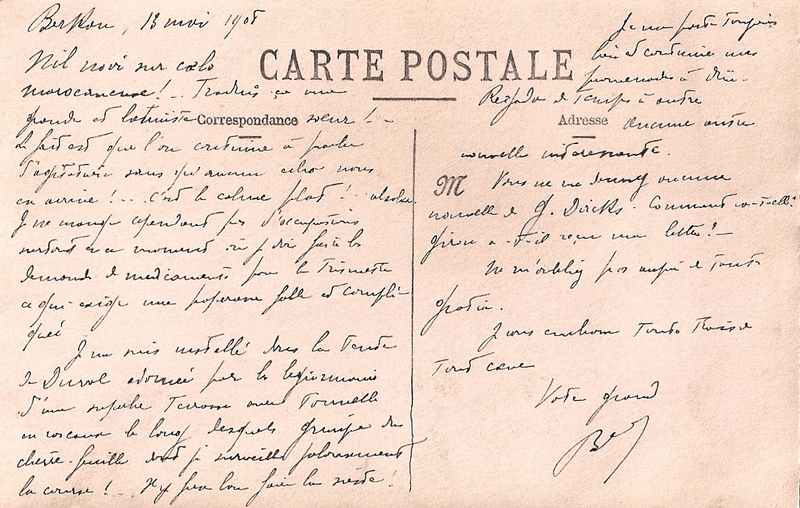 Berkou, 13 mai 1908
Nil novi sur cœlo
CARTE POSTALE
marocanense! - Traduis ça ma
grande et latiniste sœur! -
Correspondance
Le fait est que l'on continue à parler
d'agitation sans qu'aucun écho nous
en arrive!... c'est le calme plat! absolu.
Je ne manque cependant pas d'occupations
surtout en ce moment où je dois faire les
demandes de médicaments pour le trimestre
ce qui exige une paperasse folle et compli-
quée
Je me suis installé dans la tente
de Duval adornée par les légionnaires
d'une superbe terrasse avec tonnelle
en roseaux le long desquels grimpe du
chèvre-feuille dont je surveille jalousement
la course! .. Il y fera bon faire la sieste!
Je me porte toujours
bien et continue mes
promenades à
de temps à autre
Adresse
Aucune autre
nouvelle intéressante.
M Vous ne me donnez aucune
nouvelle de G. Dircks. Comment va-t-elle?
a-t-il reçu ma lettre? -
Ne m'oubliez pas auprès de tante
Je vous embrasse toutes trois de
tout cœur
Votre grand